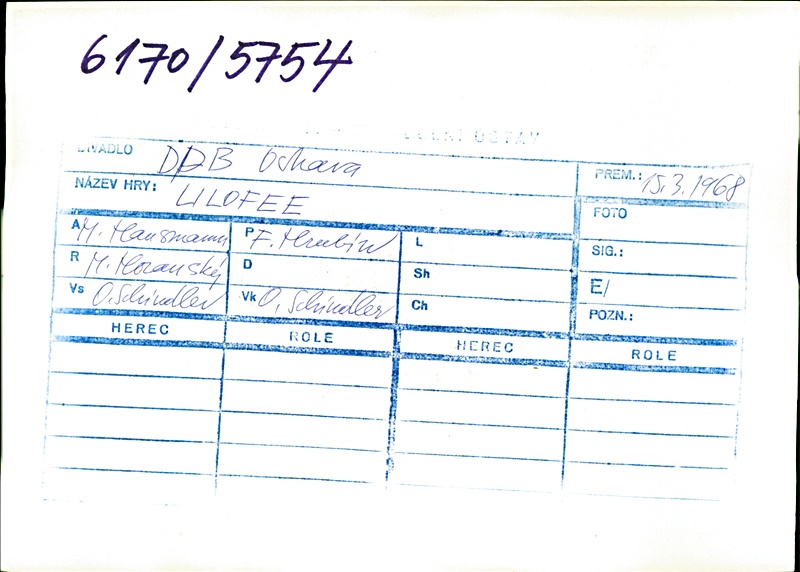 6170/5754
DIVADLO DPB Ostrava PREM.: 15.3.1968
NÁZEV HRY: LILOFEE FOTO
A M. Hausmann P F. Hrubín L SIG.:
R M. Horanský D Sh E/
Vs O. Schindler Vk O. Schindler Ch POZN.:
HEREC ROLE HEREC ROLE